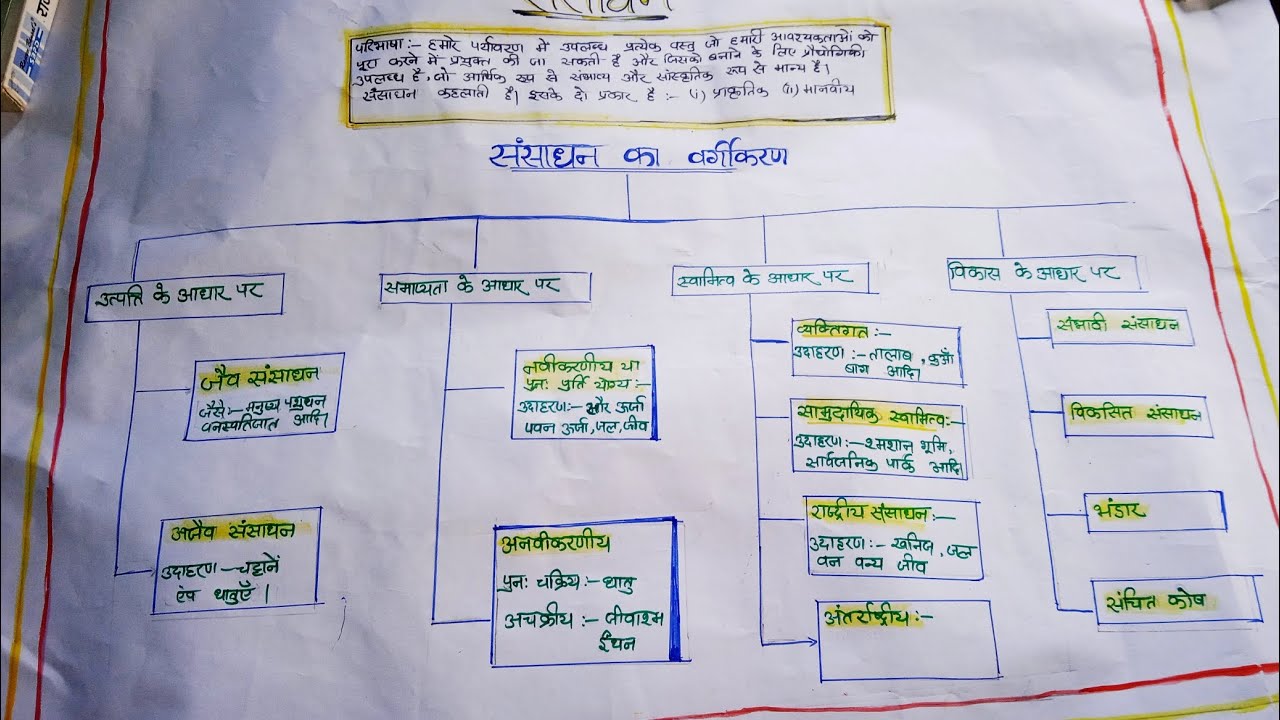 संसाधन
परिभाषा :- हमारे पर्यावरण में उपलब्ध प्रत्येक वस्तु जो हमारी आवश्यकताओं को
पूरा करने में प्रयुक्त की जा सकती है और जिसको बनाने के लिए प्रौद्योगिकी
उपलब्ध है, जो आर्थिक रूप से संभाव्य और सांस्कृतिक रूप से मान्य है।
संसाधन कहलाती है। इसके दो प्रकार है :- (i) प्राकृतिक (ii) मानवीय
संसाधन का वर्गीकरण
उत्पत्ति के आधार पर
समाप्यता के आधार पर
स्वामित्व के आधार पर
विकास के आधार पर
जैव संसाधन
जैसे:- मनुष्य पशुधन
वनस्पतिजात आदि।
अजैव संसाधन
उदाहरण - चट्टानें
एंव धातुएँ।
नवीकरणीय या
पुनः पुर्ति योग्य:-
उदाहरण:- सौर ऊर्जा
पवन ऊर्जा, जल, जीव
अनवीकरणीय
पुनः चक्रिय:- धातु
अचक्रीय:- जीवाश्म
ईंधन
व्यक्तिगत:-
उदाहरण:- तालाब, कुआँ
बाग आदि।
सामुदायिक स्वामित्व:-
उदाहरण:- श्मशान भूमि,
सार्वजनिक पार्क आदि।
राष्ट्रीय संसाधन:-
उदाहरण:- खनिज, जल
वन वन्य जीव
अंतर्राष्ट्रीय:-
संभावी संसाधन
विकसित संसाधन
भंडार
संचित कोष